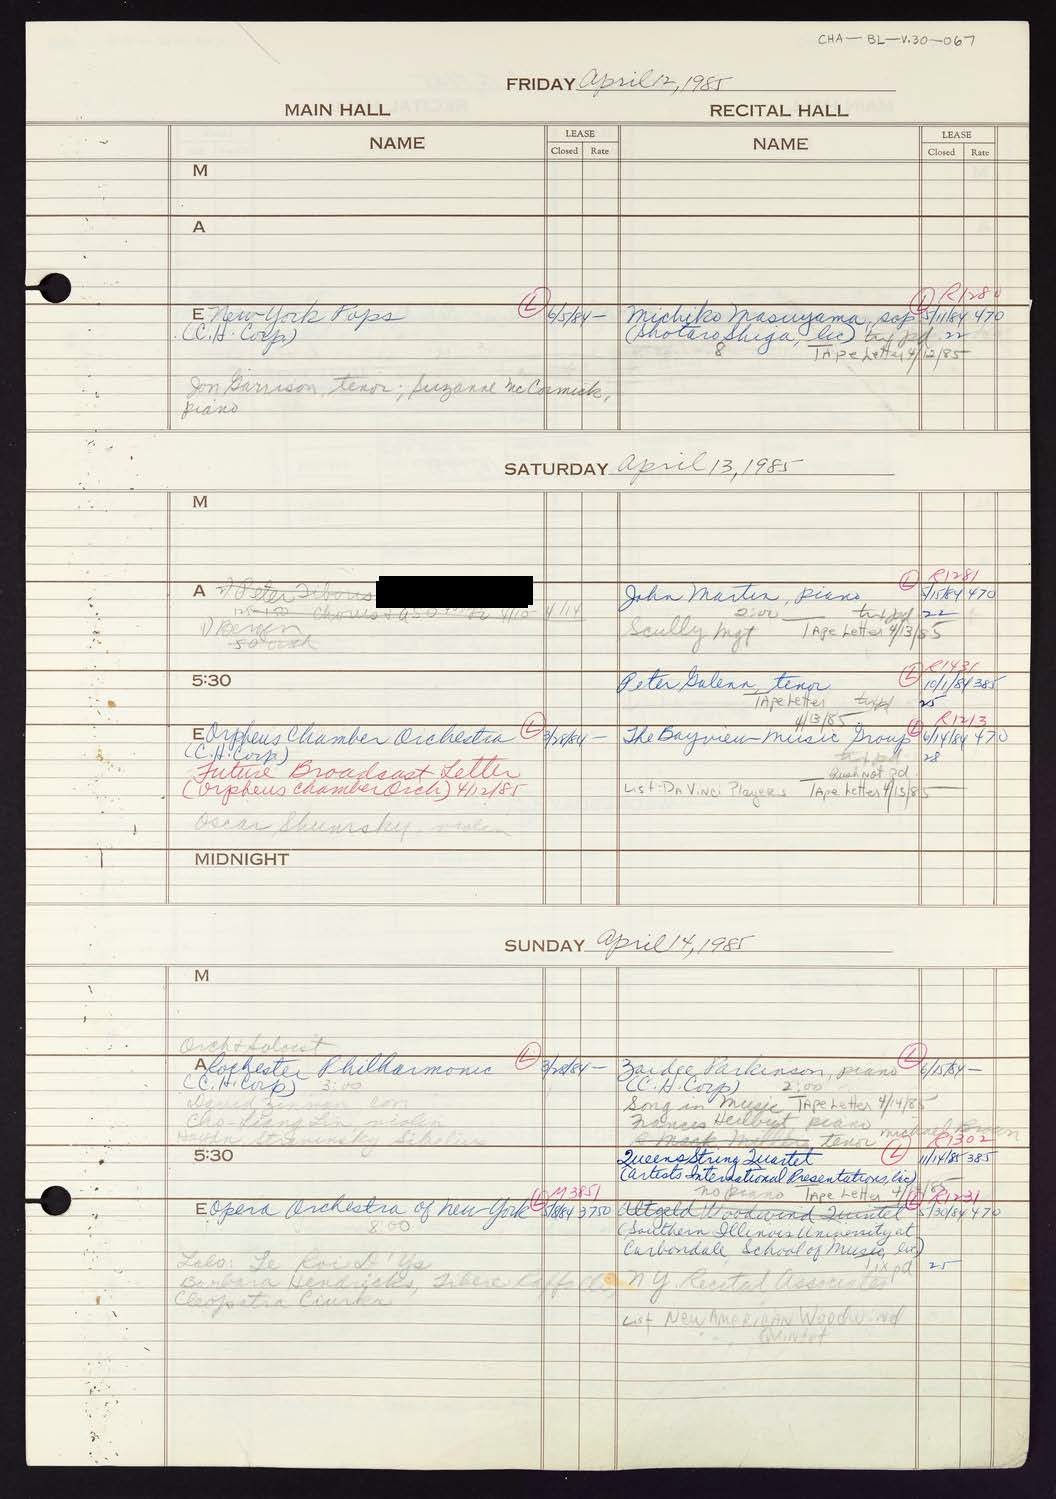 CHA-BL-V.30-067
FRIDAY April 12, 1985
MAIN HALL RECITAL HALL
NAME LEASE Closed Rate NAME LEASE Closed Rate
M
A
R1280
E New York Pops (L) 6/5/84 — Michiko Masuyama, sop (L) 5/11/84 470
(C.H. Corp) (Shotaro Shiga, lic) tix pd 22
8 TApe Letter 4/12/85
Jon Garrison, tenor; Suzanne McCormick,
piano
SATURDAY April 13, 1985
M
(L) R1281
A Peter Tiboris John Martin, piano 5/15/84 470
Chorus + ASO 4/14 2:00 tix pd 22
1) Bergen Scully Mgt TApe Letter 4/13/85
R1431
5:30 Peter Galenn, tenor (L) 10/1/84 385
TApe Letter tix pd 25
4/13/85 R1213
E Orpheus Chamber Orchestra (L) 3/28/84 — The Bayview Music Group (L) 6/14/84 470
(C.H. Corp) tix pd 28
Future Broadcast Letter not pd
(Orpheus chamber Orch) 4/12/85 List: DA Vinci Players TApe Letter 4/13/85
Oscar Shumsky, violin
MIDNIGHT
SUNDAY April 14, 1985
M
Orch + Soloist
A Rochester Philharmonic (L) 3/28/84 — Zaidee Parkinson, piano (L) 6/15/84 —
(C.H. Corp) 3:00 (C.H. Corp) 2:00
David Zinman con Song in Music TApe Letter 4/14/85
Cho-Liang Lin, violin Frances Heilbut, piano
Haydn Stravinsky Sibelius tenor Michael Brown
R1302
5:30 Queens String Quartet (L) 11/14/85 385
(Artists International Presentations, lic)
no piano TApe Letter 4/ /85
M3851 R1231
E Opera Orchestra of New York (L) 5/8/84 3750 Altgeld Woodwind Quintet (L) 5/30/84 470
8:00 (Southern Illinois University at
Carbondale School of Music, lic)
tix pd 25
Lalo: Le Roi D'Ys
Barbara Hendricks, NY Recital Associates
Cleopatra Ciurca
List New AMERICAN Woodwind
Quintet